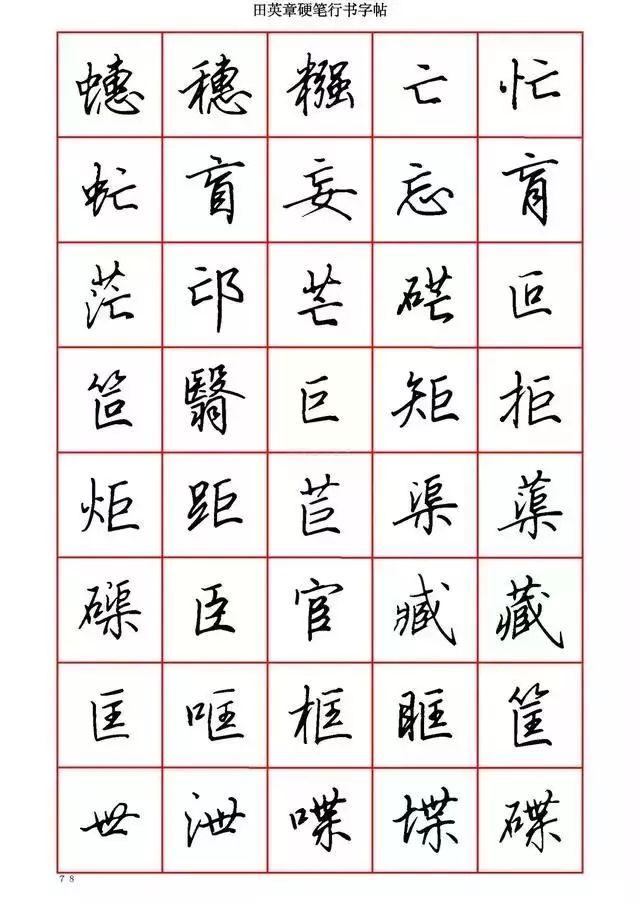 田英章硬笔行书字帖
蟪 穗 糨 亡 忙
虻 盲 妄 忘 肓
茫 邙 芒 硭 叵
笸 翳 巨 矩 拒
炬 距 苣 渠 蕖
磲 臣 宦 臧 藏
匡 哐 框 眶 筐
世 泄 喋 堞 碟
78